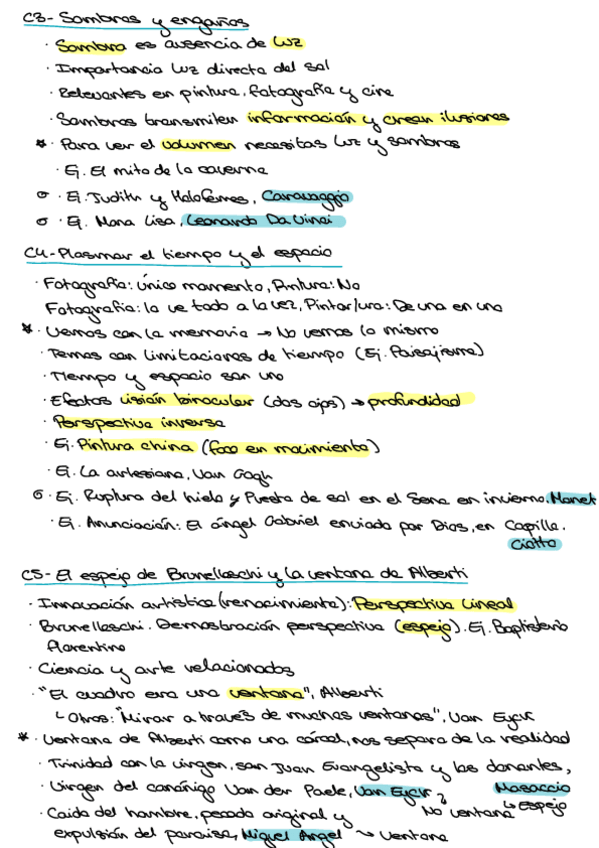 C3- Sombras y engaños
· Sombra es ausencia de luz
· Importancia luz directa del sol
· Relevantes en pintura, fotografía y cine
· Sombras transmiten información y crean ilusiones
* · Para ver el volumen necesitas luz y sombras
· Ej. El mito de la caverna
· Ej. Judith y Holofernes, Caravaggio
· Ej. Mona Lisa, Leonardo Da Vinci
C4- Plasmar el tiempo y el espacio
· Fotografía: único momento, Pintura: No
Fotografía: lo ve todo a la vez, Pintor/ura: De una en uno
* · Vemos con la memoria → No vemos lo mismo
· Temas con limitaciones de tiempo (Ej. Paisajismo)
· Tiempo y espacio son uno
· Efectos visión binocular (dos ojos) → profundidad
· Perspectiva inversa
· Ej. Pintura china (foco en movimiento)
· Ej. La artesiana, Van Gogh
· Ej. Ruptura del hielo y Puesta de sol en el Sena en invierno. Monet
· Ej. Anunciación: El ángel Gabriel enviado por Dios, en Capilla.
Giotto
C5- El espejo de Brunelleschi y la ventana de Alberti
· Innovación artística (renacimiento): Perspectiva Lineal
· Brunelleschi. Demostración perspectiva (espejo). Ej. Baptisterio
florentino
· Ciencia y arte relacionados
· "El cuadro era una ventana", Alberti
└ Otros: "Mirar a través de muchas ventanas", Van Eyck
* · Ventana de Alberti como una cárcel, nos separa de la realidad
· Trinidad con la virgen, san Juan Evangelista y los donantes,
Masaccio
· Virgen del canónigo Van der Paele, Van Eyck
No ventana ↳ espejo
· Caída del hombre, pecado original y
expulsión del paraiso, Miguel Ángel → Ventana